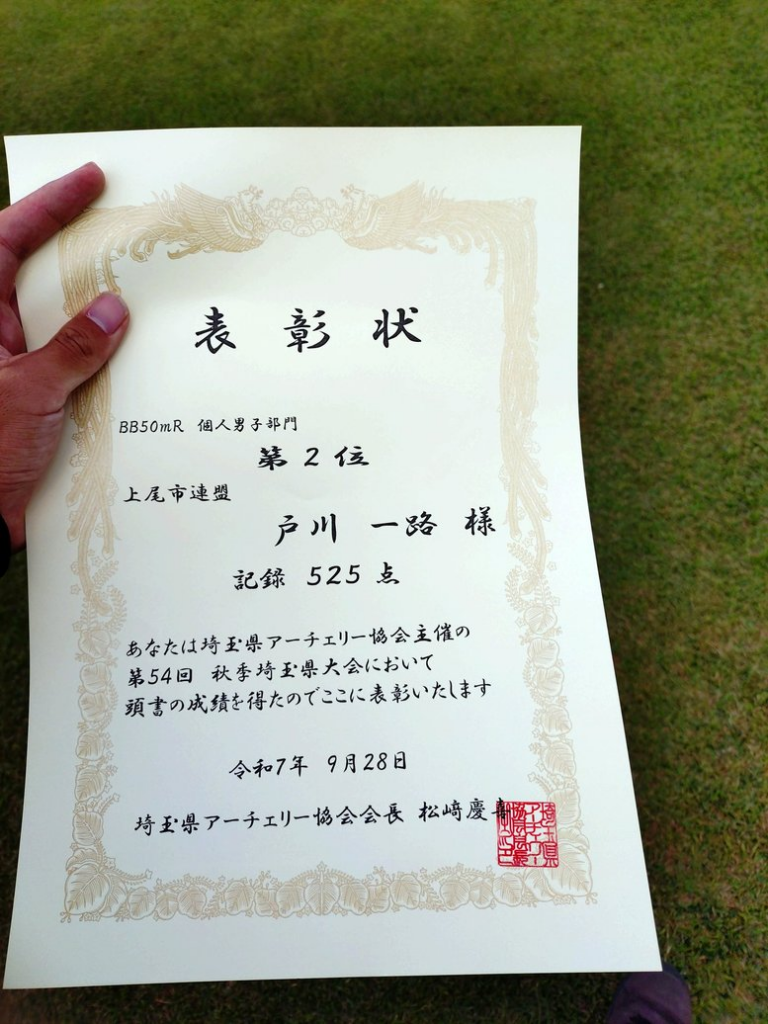 表彰状
BB50mR 個人男子部門
第2位
上尾市連盟
戸川 一路 様
記録 525点
あなたは埼玉県アーチェリー協会主催の
第54回 秋季埼玉県大会において
頭書の成績を得たのでここに表彰いたします
令和7年 9月28日
埼玉県アーチェリー協会会長 松﨑慶